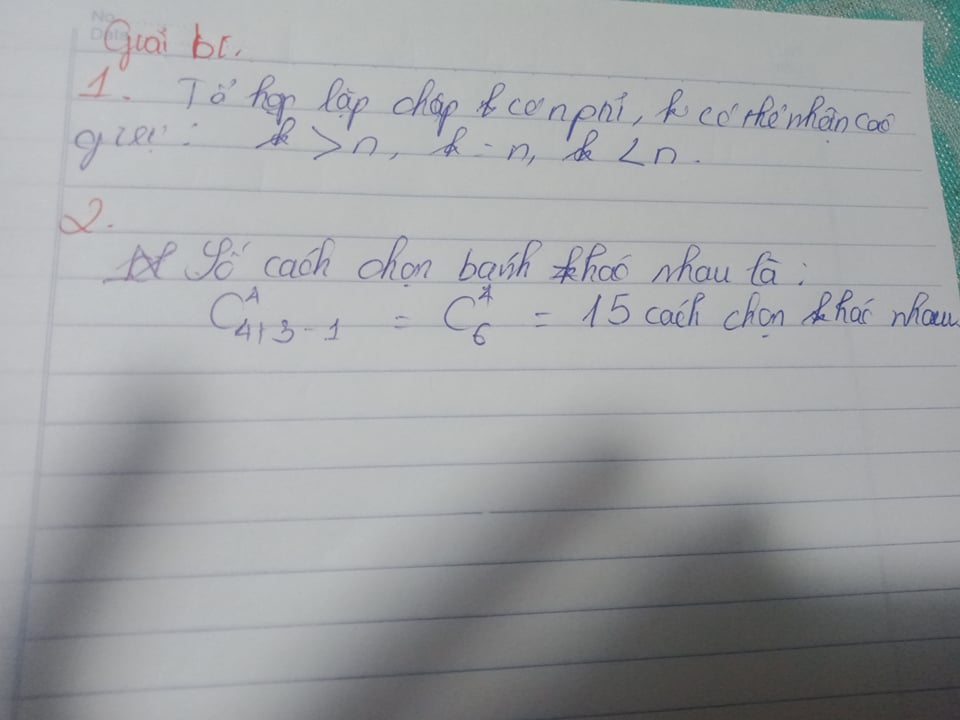 No.
Date
Giải bt.
1. Tổ hợp lặp chập k của n phỉ, k có thể nhận các
giá trị: k > n, k = n, k < n.
2.
Số cách chọn bánh khác nhau là:
C⁴₄₊₃₋₁ = C⁴₆ = 15 cách chọn khác nhau